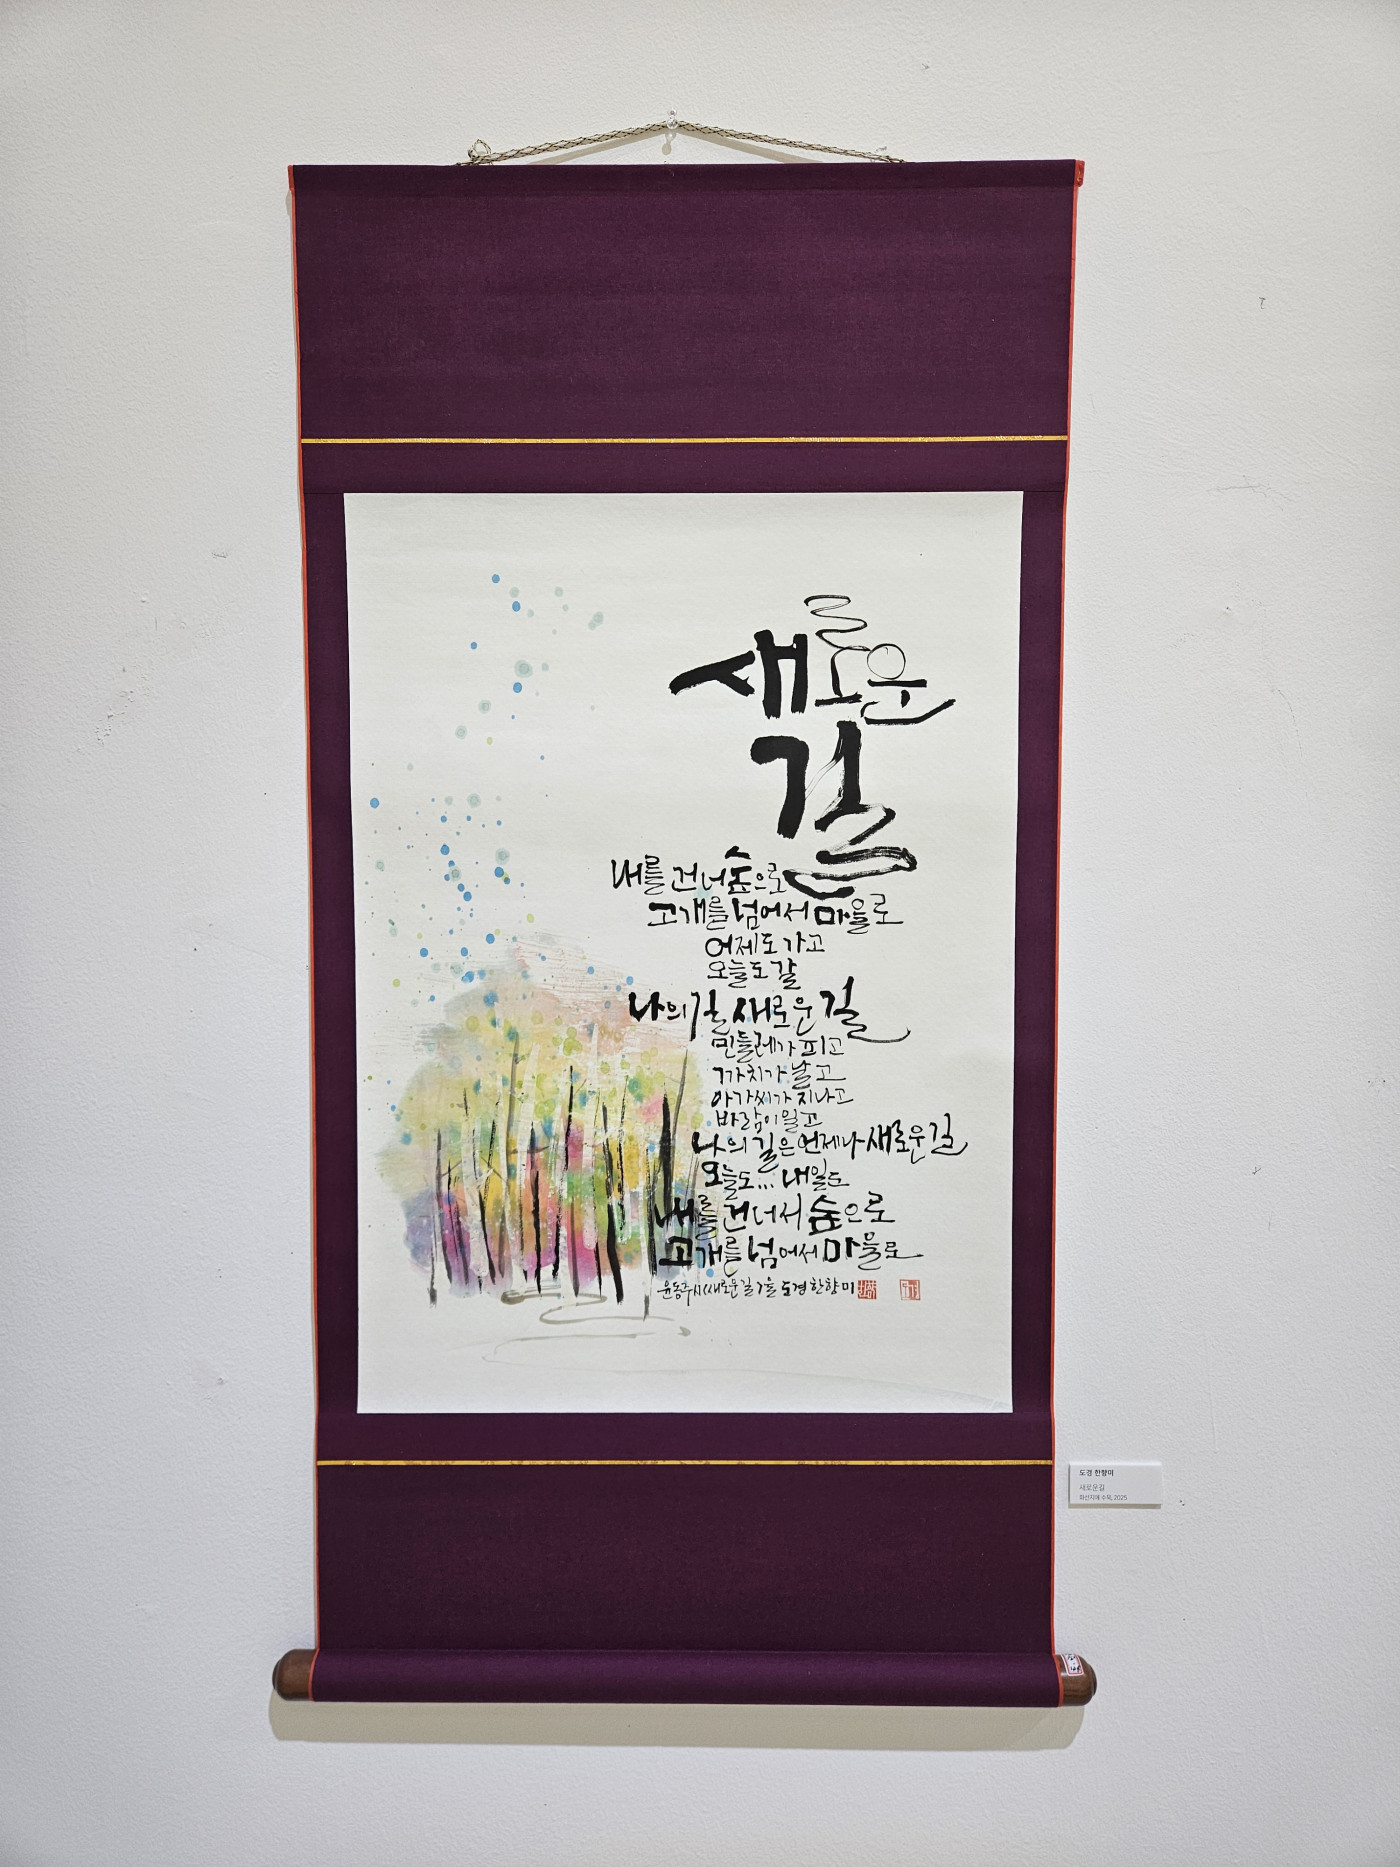 새로운
길
내를 건너 숲으로
고개를 넘어서 마을로
어제도 가고
오늘도 갈
나의 길 새로운 길
민들레가 피고
까치가 날고
아가씨가 지나고
바람이 일고
나의 길은 언제나 새로운 길
오늘도... 내일도
내를 건너서 숲으로
고개를 넘어서 마을로
윤동주 시 새로운 길 도경 한향미
도경 한향미
새로운길
화선지에 수묵, 2025